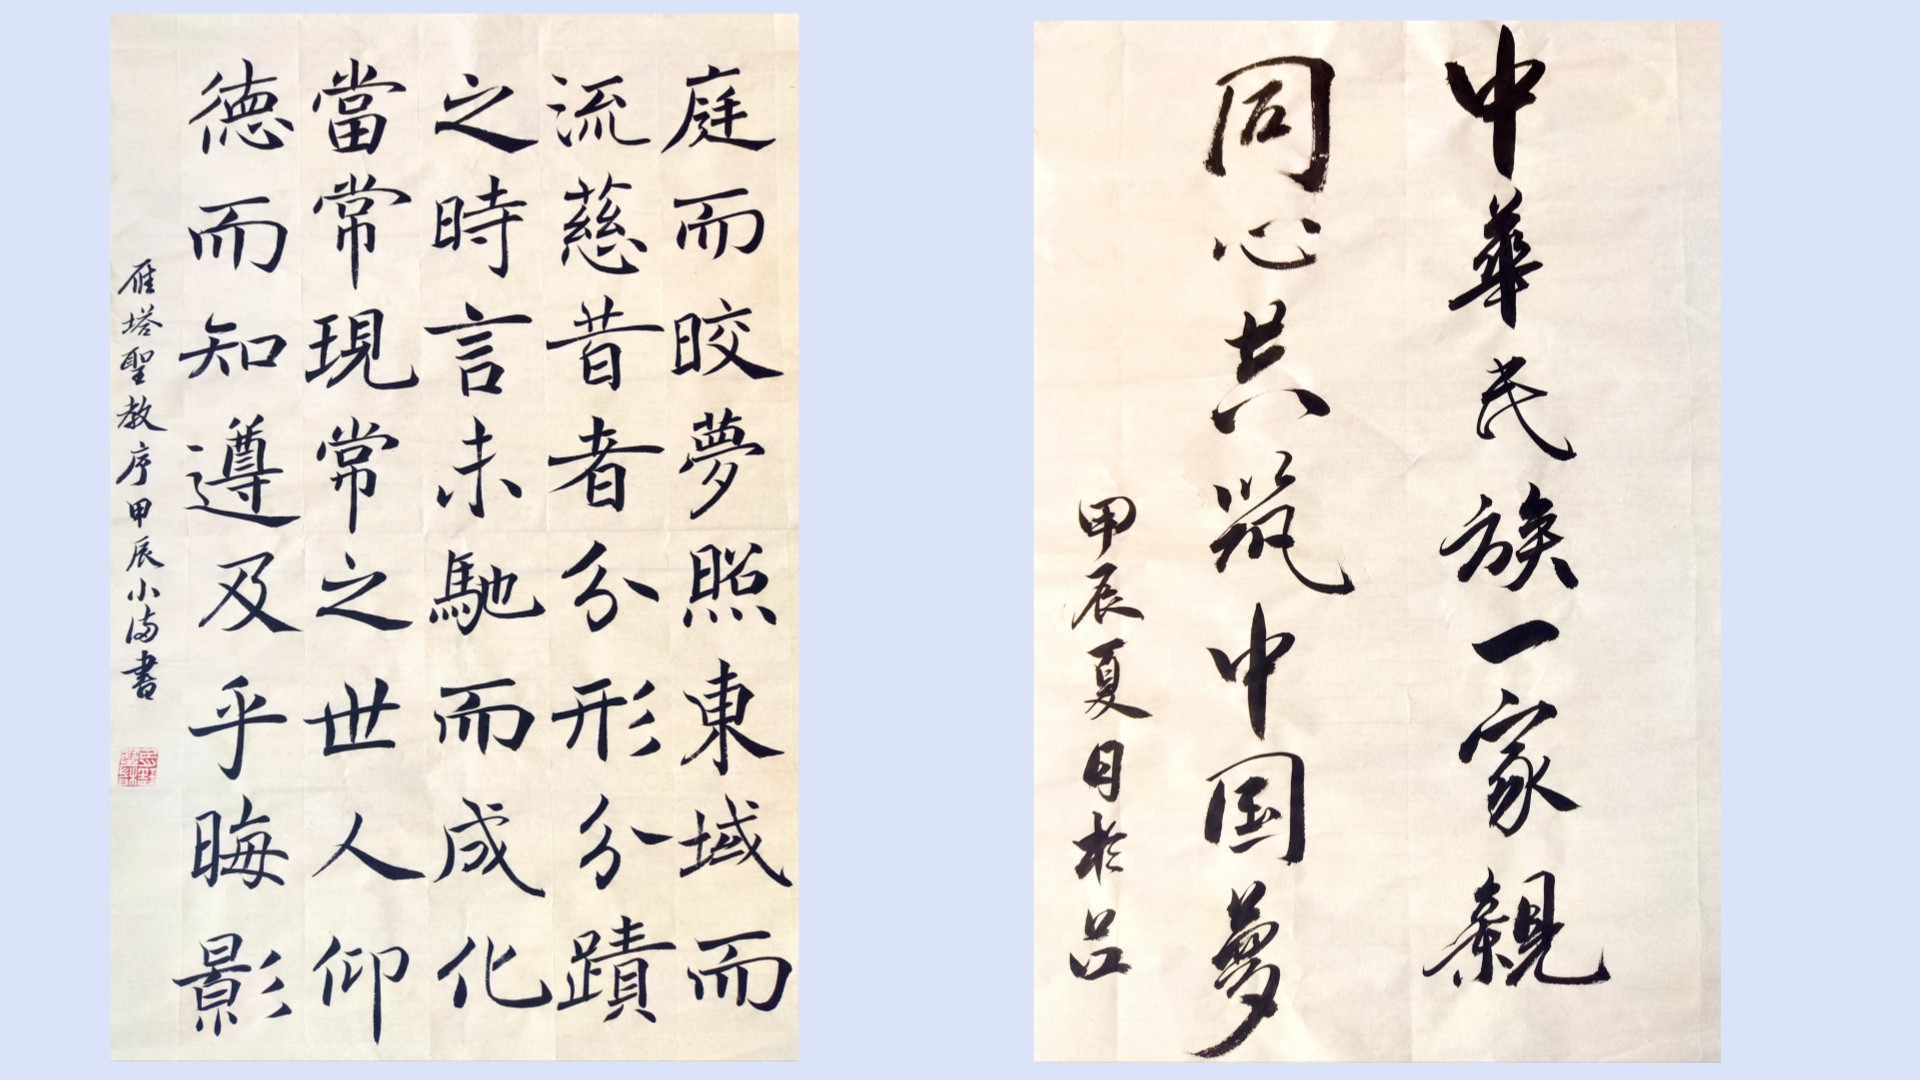 庭而皎夢照東域而
流慈昔者分形分蹟
之時言未馳而成化
當常現常之世人仰
德而知遵及乎晦影
雁塔聖教序甲辰小满書
中華民族一家親
同心共筑中国夢
甲辰夏月於吕